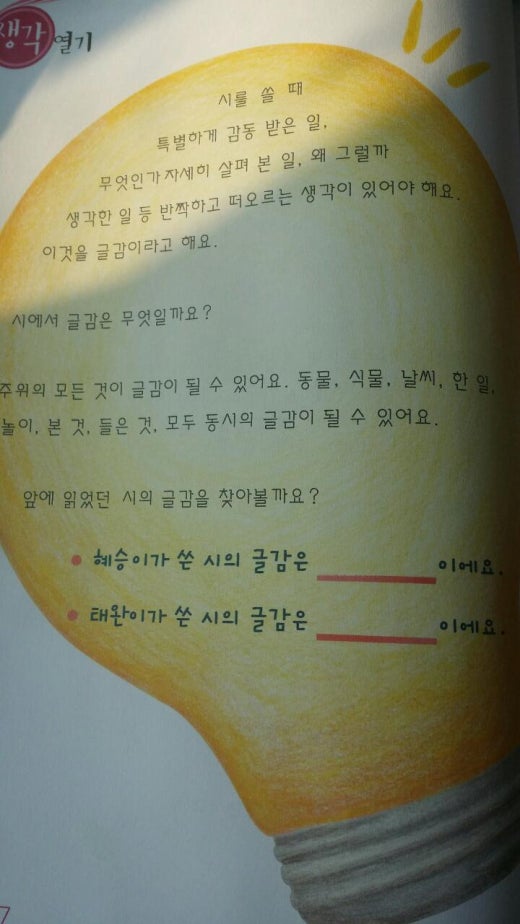 생각 열기
시를 쓸 때
특별하게 감동 받은 일,
무엇인가 자세히 살펴 본 일, 왜 그럴까
생각한 일 등 반짝하고 떠오르는 생각이 있어야 해요.
이것을 글감이라고 해요.
시에서 글감은 무엇일까요?
주위의 모든 것이 글감이 될 수 있어요. 동물, 식물, 날씨, 한 일,
놀이, 본 것, 들은 것, 모두 동시의 글감이 될 수 있어요.
앞에 읽었던 시의 글감을 찾아볼까요?
• 혜승이가 쓴 시의 글감은 ________ 이에요.
• 태완이가 쓴 시의 글감은 ________ 이에요.